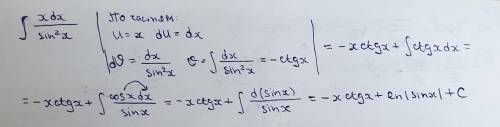 ∫ x dx / sin²x | По частям: u = x du = dx dϑ = dx / sin²x ϑ = ∫ dx / sin²x = -ctgx | = -x ctgx + ∫ ctgx dx =
= -x ctgx + ∫ cosx dx / sinx = -x ctgx + ∫ d(sinx) / sinx = -x ctgx + ln|sinx| + C